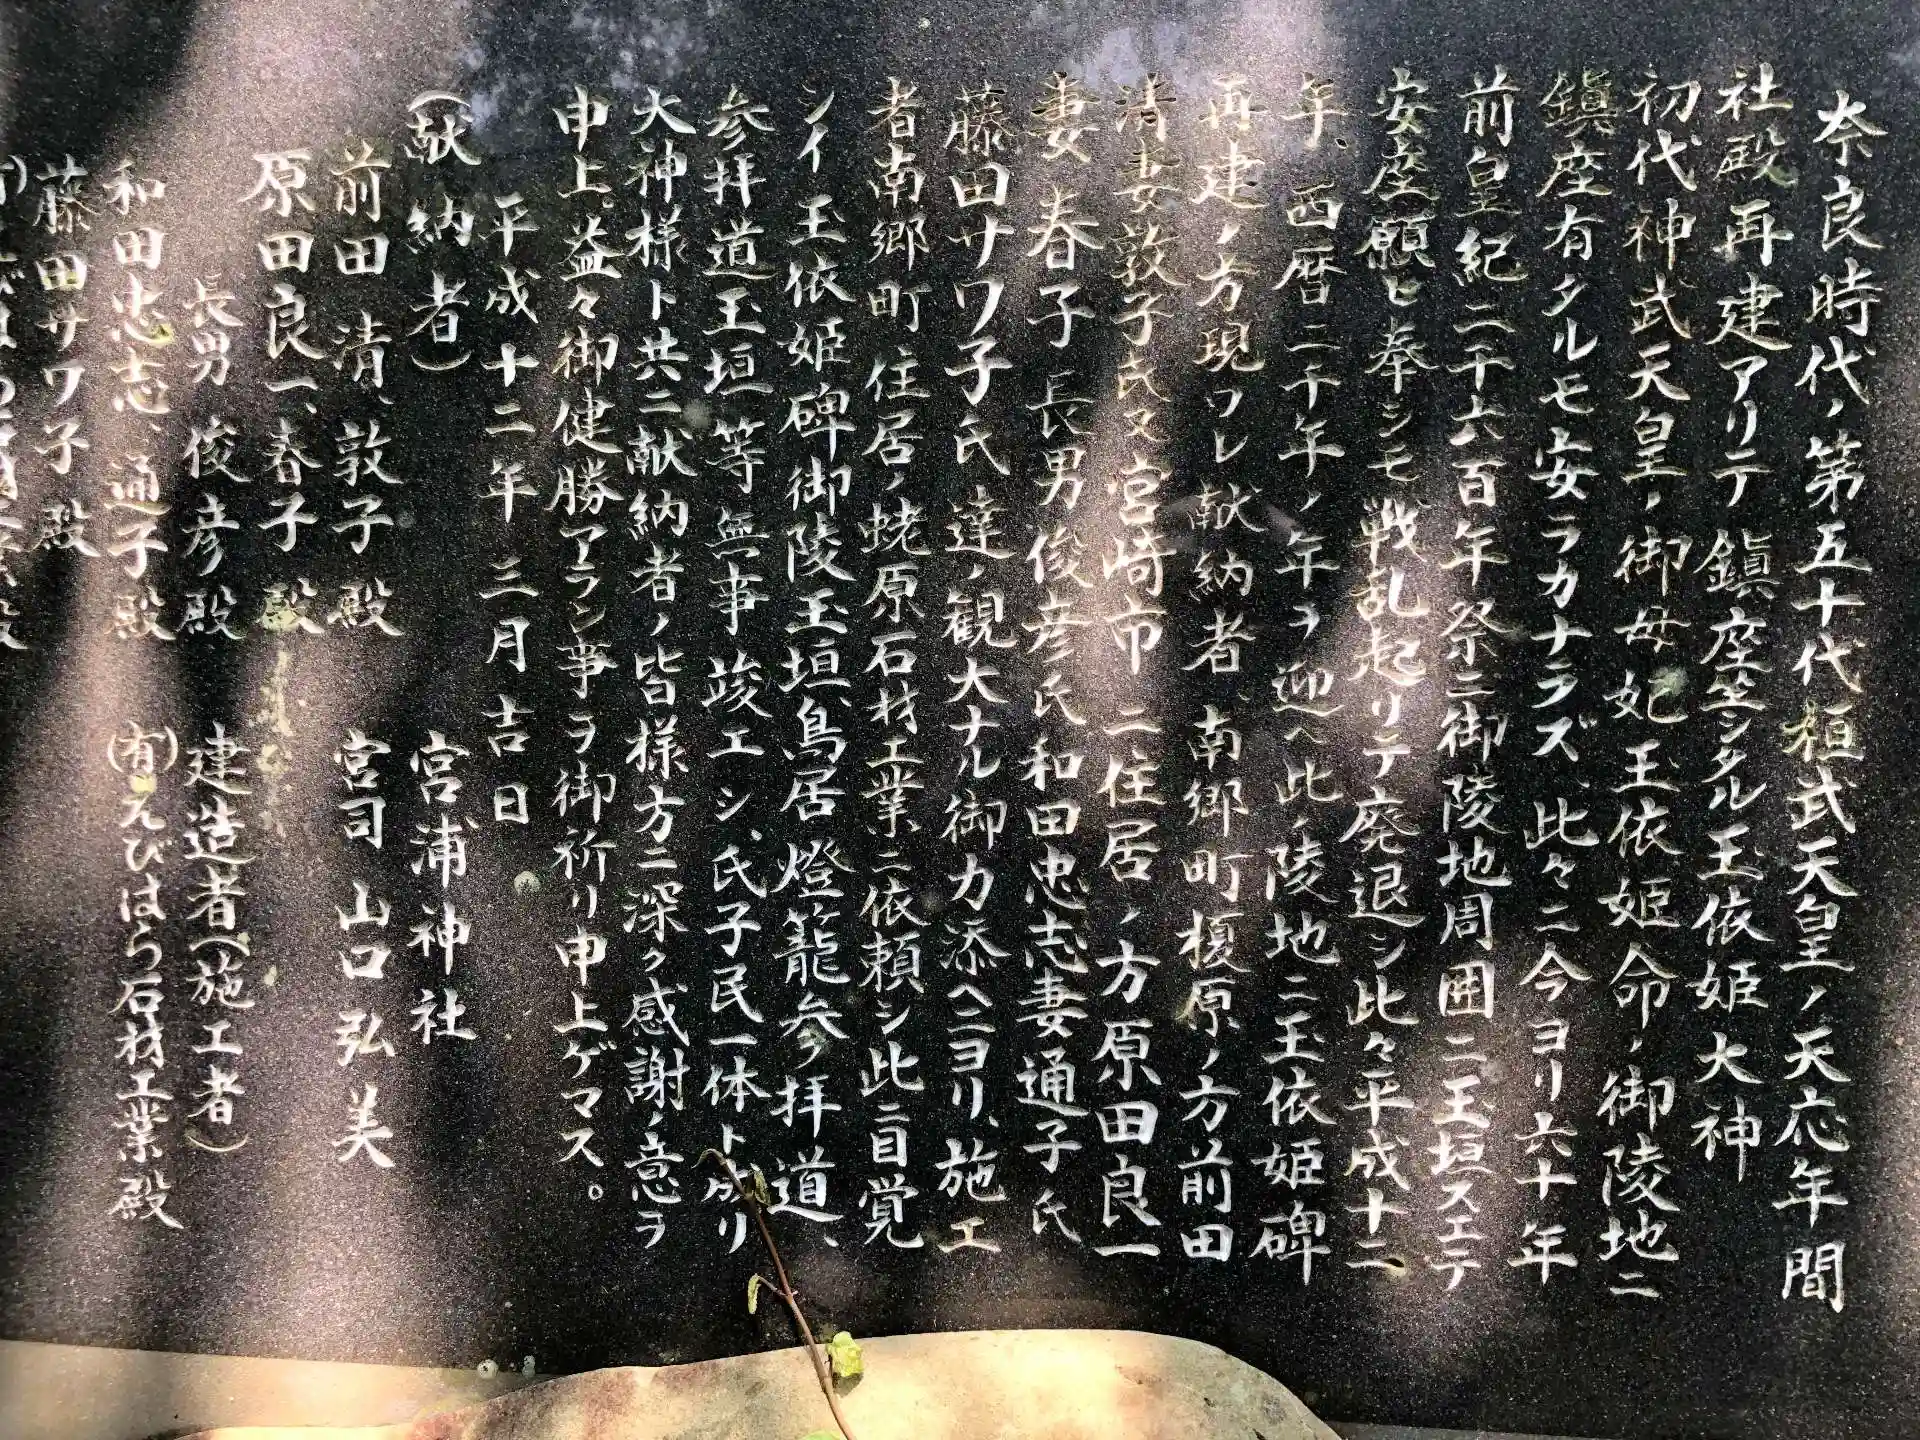 奈良時代ノ第五十代桓武天皇ノ天応年間
社殿再建アリテ鎮座坐シタル玉依姫大神
初代神武天皇ノ御母妃玉依姫命ノ御陵地ニ
鎮座有タルモ安ラカナラズ、此々ニ今ヨリ六十年
前皇紀二千六百年祭ニ御陵地周囲ニ玉垣スエテ
安座願ヒ奉シモ戦乱起リテ廃退シ此々平成十二
年、西暦二千年ノ年ヲ迎へ此ノ陵地ニ玉依姫碑
再建ノ方現ワレ献納者、南郷町榎原ノ方前田
清妻敦子氏又宮崎市ニ住居ノ方原田良一
妻春子長男俊彦氏和田忠志妻通子氏
藤田サワ子氏達ノ観大ナル御力添ヘニヨリ、施工
者南郷町住居ノ蛯原石材工業ニ依頼シ此ニ目覚
シイ玉依姫碑御陵玉垣、鳥居燈籠参ノ拝道、
参拝道玉垣等無事竣エシ、氏子民一体ト成リ
大神様ト共ニ献納者ノ皆様方ニ深ク感謝ノ意ヲ
申上。益々御健勝アラン事ヲ御祈リ申上ゲマス。
平成十二年三月吉日
宮浦神社
宮司 山口弘美
(献納者)
前田清、敦子殿
原田良一、春子殿
長男 俊彦殿
和田忠志、通子殿
藤田サワ子殿
建造者(施工者)
(有)えびはら石材工業殿